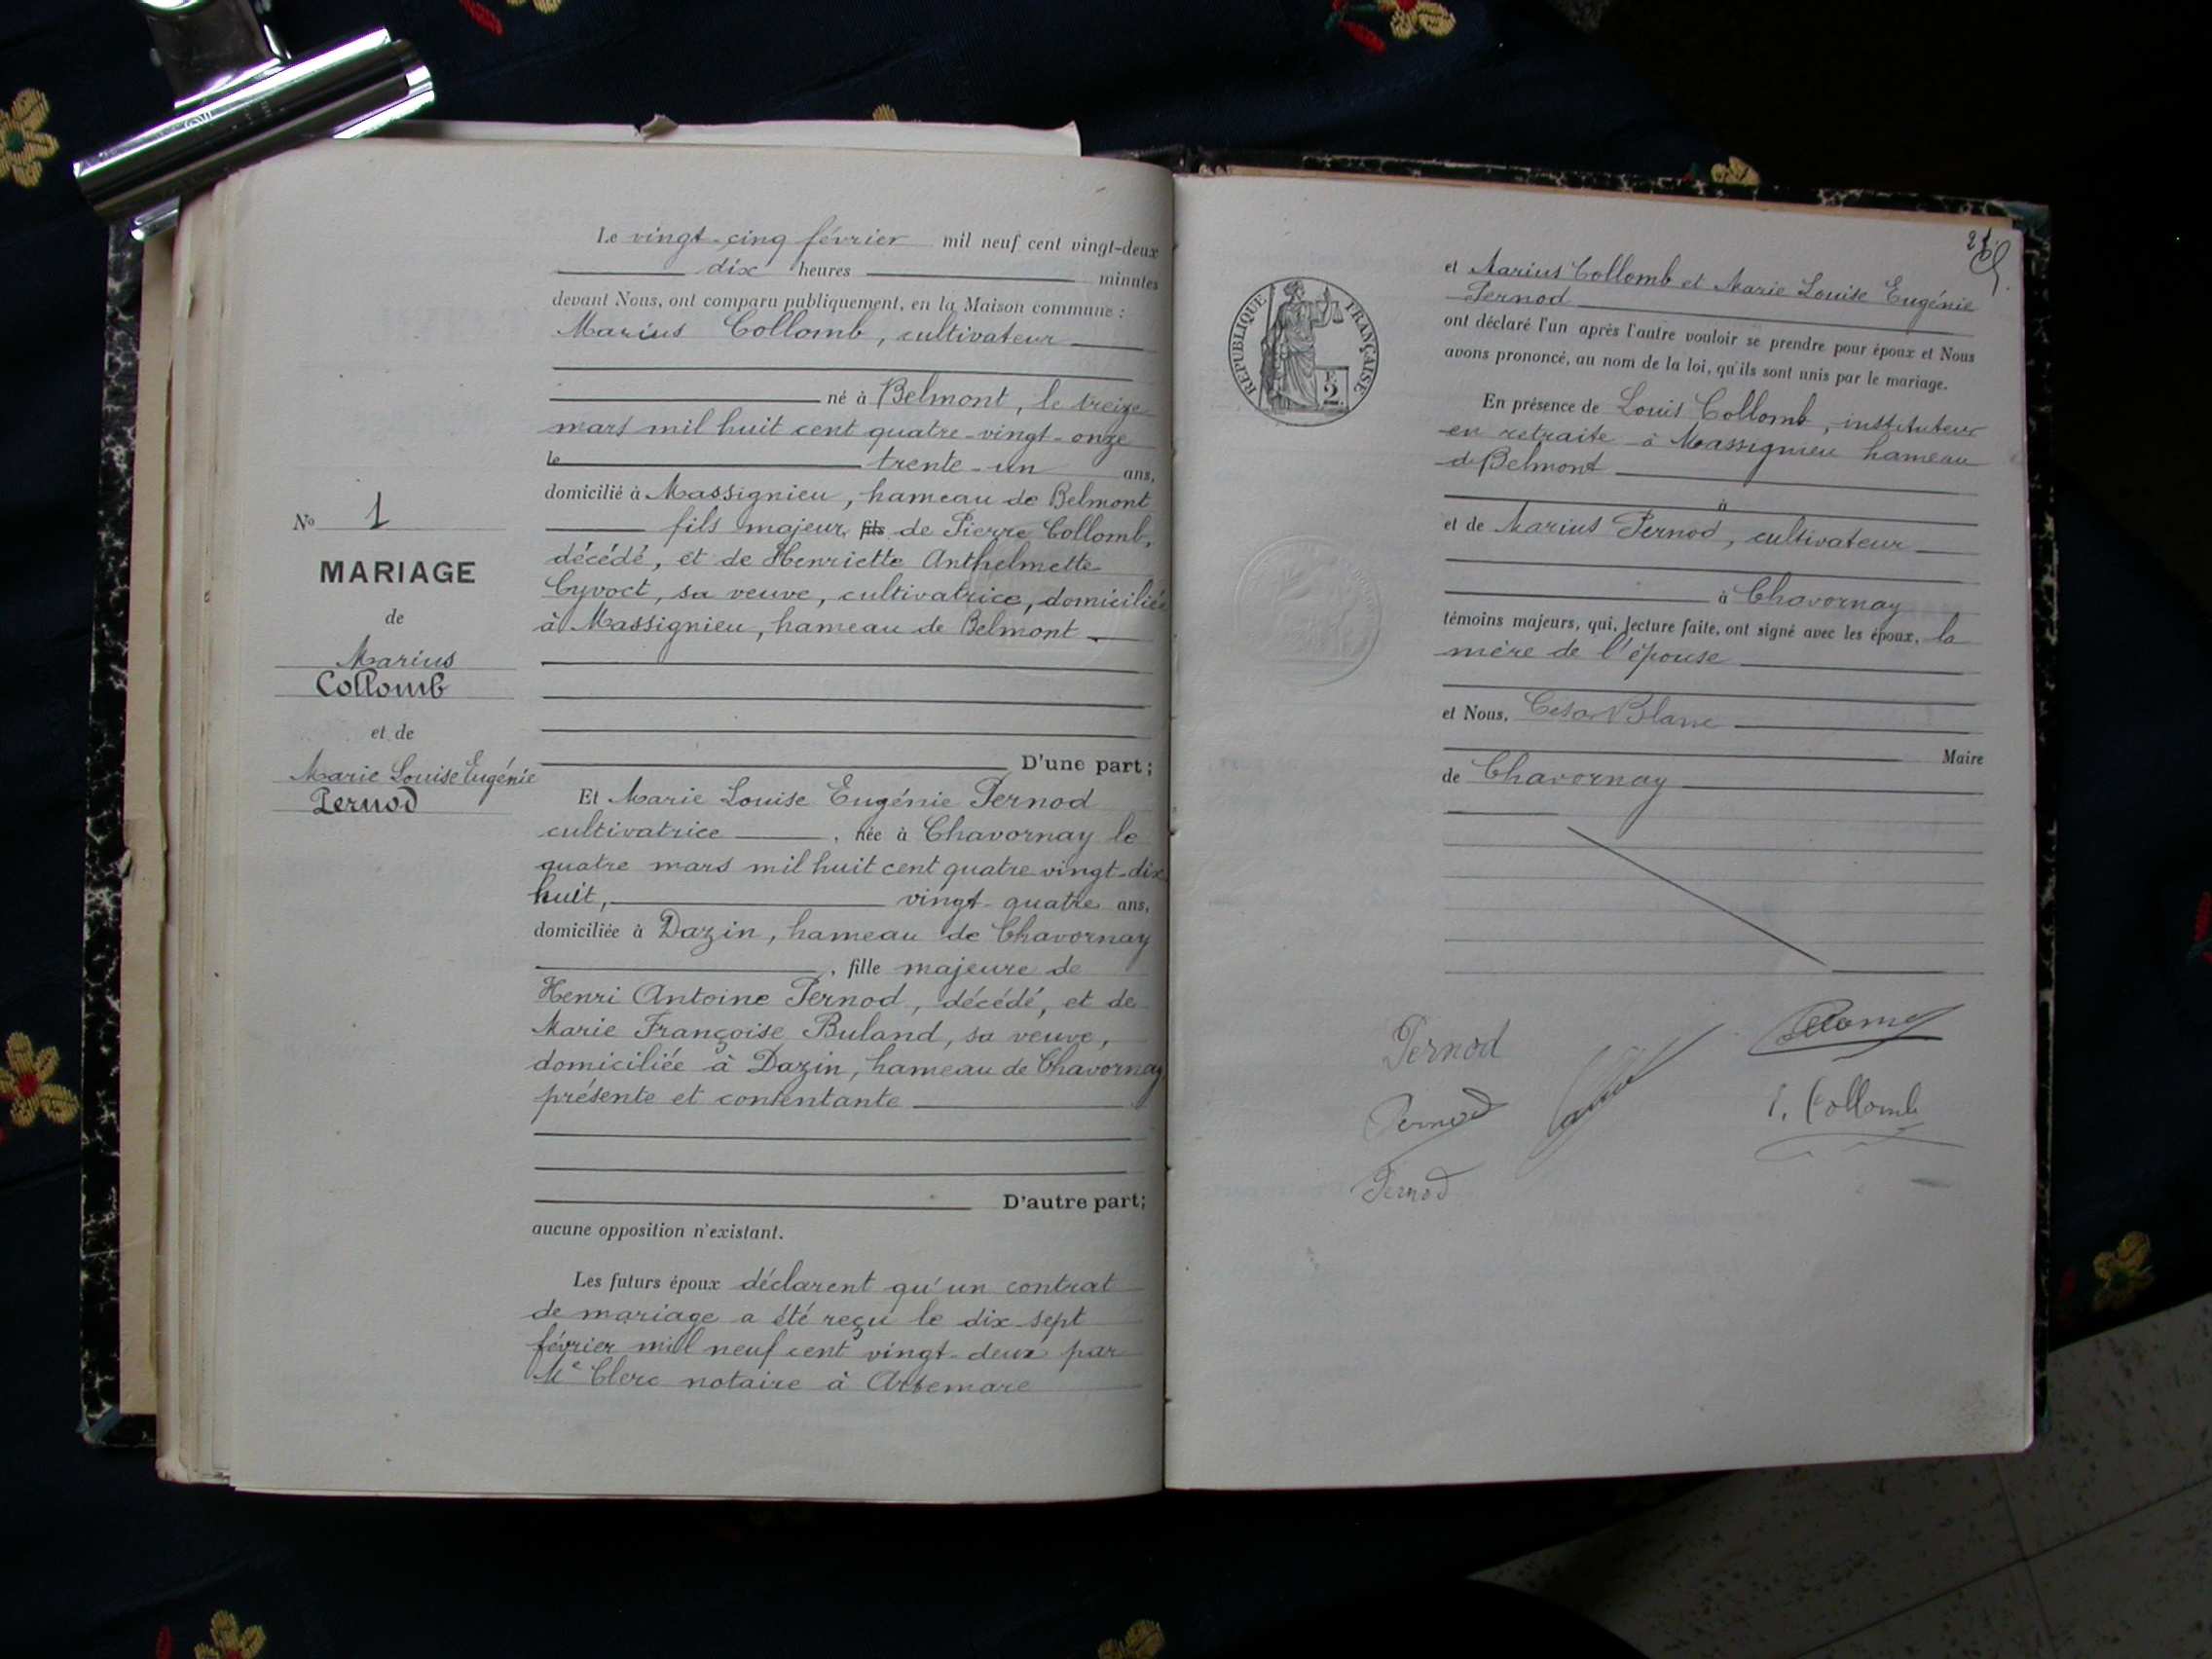 Le vingt-cinq février mil neuf cent vingt-deux
dix heures minutes
devant Nous, ont comparu publiquement, en la Maison commune :
Marius Collomb, cultivateur
né à Belmont, le treize
mars mil huit cent quatre-vingt-onze
le trente-un ans,
domicilié à Massignieu, hameau de Belmont
fils majeur fils de Pierre Collomb,
décédé, et de Henriette Anthelmette
Cyvoct, sa veuve, cultivatrice, domiciliée
à Massignieu, hameau de Belmont
D'une part;
No 1
MARIAGE
de
Marius
Collomb
et de
Marie Louise Eugénie
Pernod
Et Marie Louise Eugénie Pernod
cultivatrice, née à Chavornay le
quatre mars mil huit cent quatre vingt-dix
huit, vingt-quatre ans,
domiciliée à Dazin, hameau de Chavornay
, fille majeure de
Henri Antoine Pernod, décédé, et de
Marie Françoise Buland, sa veuve,
domiciliée à Dazin, hameau de Chavornay
présente et contentante
D'autre part;
aucune opposition n'existant.
Les futurs époux déclarent qu'un contrat
de mariage a été reçu le dix-sept
février mil neuf cent vingt-deux par
Me Clerc notaire à Artemare
et Marius Collomb et Marie Louise Eugénie
Pernod
ont déclaré l'un après l'autre vouloir se prendre pour époux et Nous
avons prononcé, au nom de la loi, qu'ils sont unis par le mariage.
En présence de Louis Collomb, instituteur
en retraite à Massignieu hameau
de Belmont
à
et de Marius Pernod, cultivateur
à Chavornay
témoins majeurs, qui, lecture faite, ont signé avec les époux, la
mère de l'épouse
et Nous, César Blanc
Maire
de Chavornay
RÉPUBLIQUE FRANÇAISE
F
2
Pernod
Pernod
Collomb
Pernod